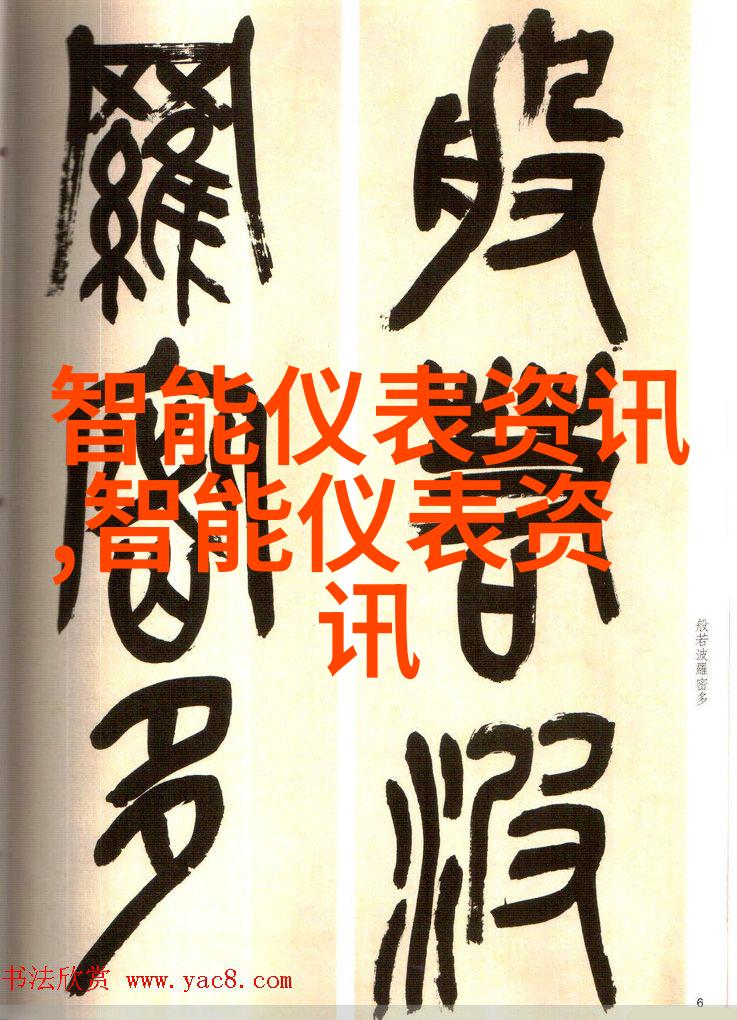 般若波
羅密多
智能仪表资讯
,智能仪表资
讯
般若波羅密多
书法欣赏 www.yac8.com
6